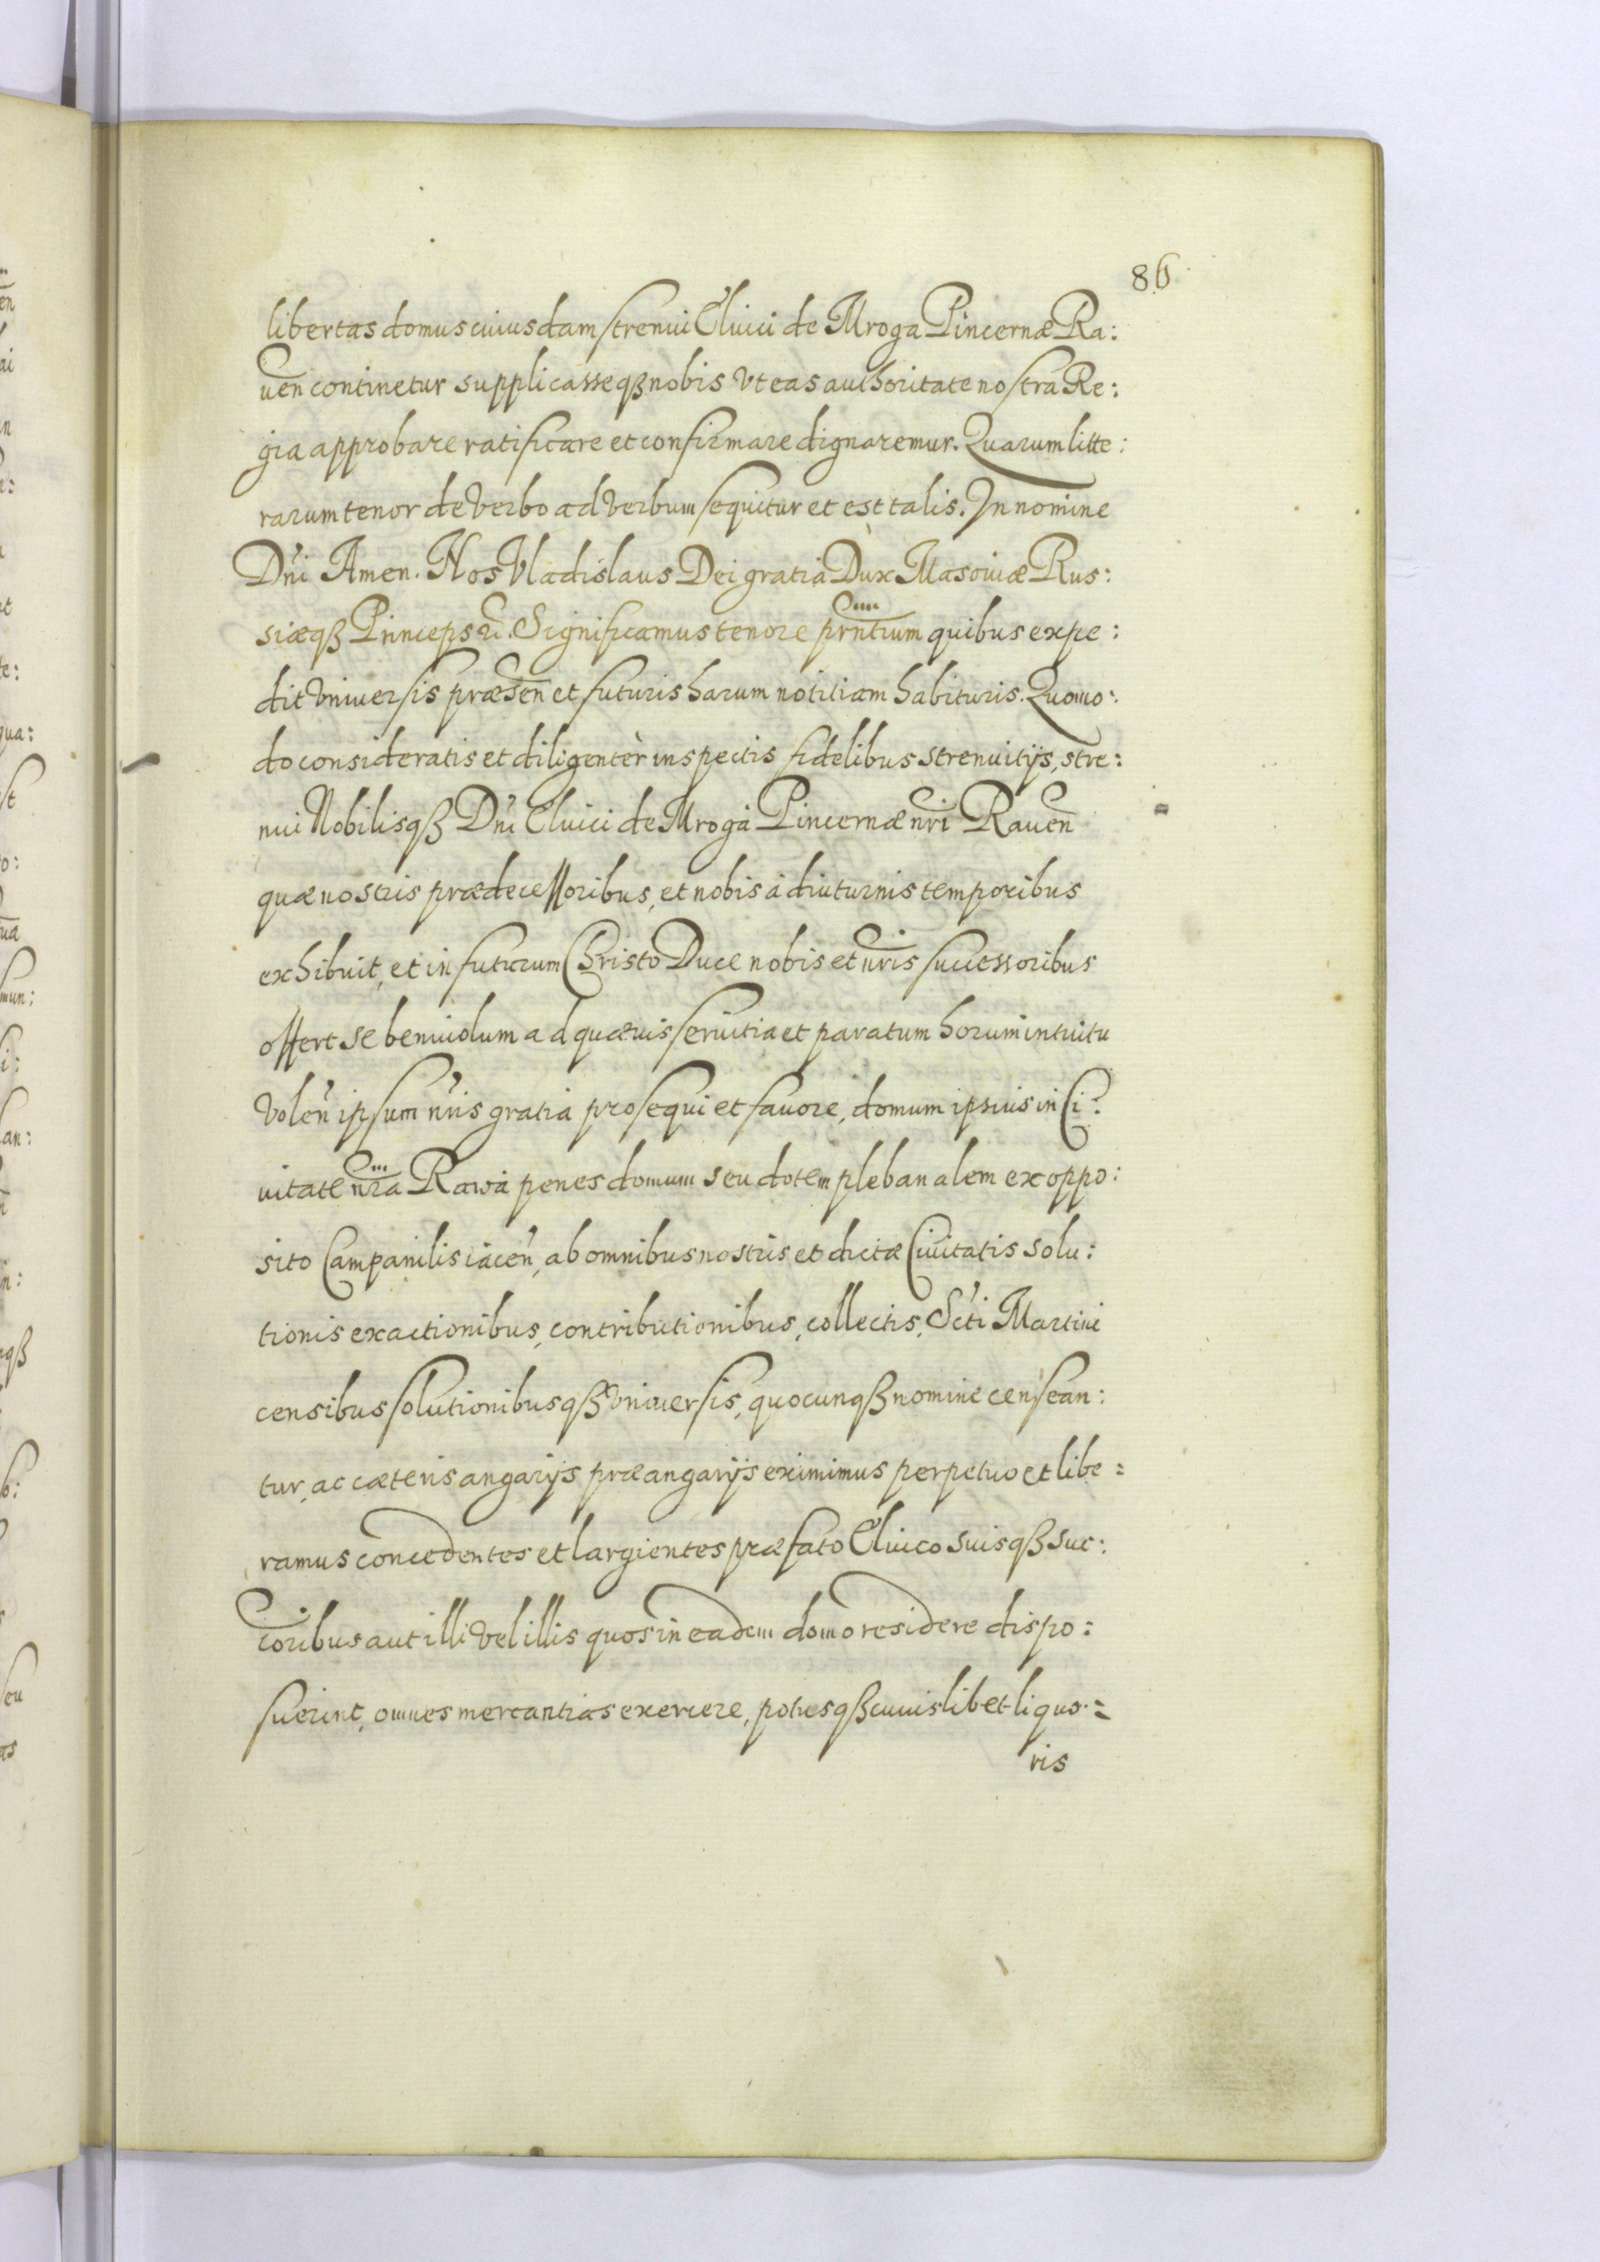 86
libertas domus cuiusdam strenui Eluici de Mroga Pincernæ Ra:
uen̄ continetur supplicasseqß nobis Vt eas authoritate nostra Re:
gia approbare ratificare et confirmare dignaremur. Quarum litte:
rarum tenor de Verbo ad Verbum sequitur et est talis. In nomine
Dn̄i Amen. Nos Vladislaus Dei gratia Dux Masouiæ Rus:
siæqß Princeps &c̄. Significamus tenore prn̄tium quibus expe:
dit Vniuersis præsen̄ et futuris harum notitiam habituris. Quomo:
do consideratis et diligentèr inspectis fidelibus strenuitijs, stre:
nui Nobilisqß Dn̄i Eluici de Mroga Pincernæ nr̄i Rauen̄
quæ nostris prædecessoribus, et nobis à diuturnis temporibus
exhibuit, et in futurum Christo Duce nobis et nr̄is successoribus
offert se beniuolum ad quæuis seruitia et paratum horum intuitu
Volen̄ ipsum nr̄is gratia prosequi et fauore, domum ipsius in Ci:
uitate nr̄a Rawa penes domum seu dotem plebanalem ex oppo:
sito Campanilis iacen̄, ab omnibus nostris et dictæ Ciuitatis solu:
tionis exactionibus, contributionibus, collectis, Sc̄ti Martini
censibus solutionibusqß Vniuersis, quocunqß nomine censean:
tur, ac cæteris angarijs præangarijs eximimus perpetuo et libe:
ramus concedentes et largientes præfato Eluico suisqß suc:
coribus aut illi Vel illis quos in eadem domo residere dispo:
suerint, omnes mercantias exercere, potusqß cuiuslibet liquo:
ris